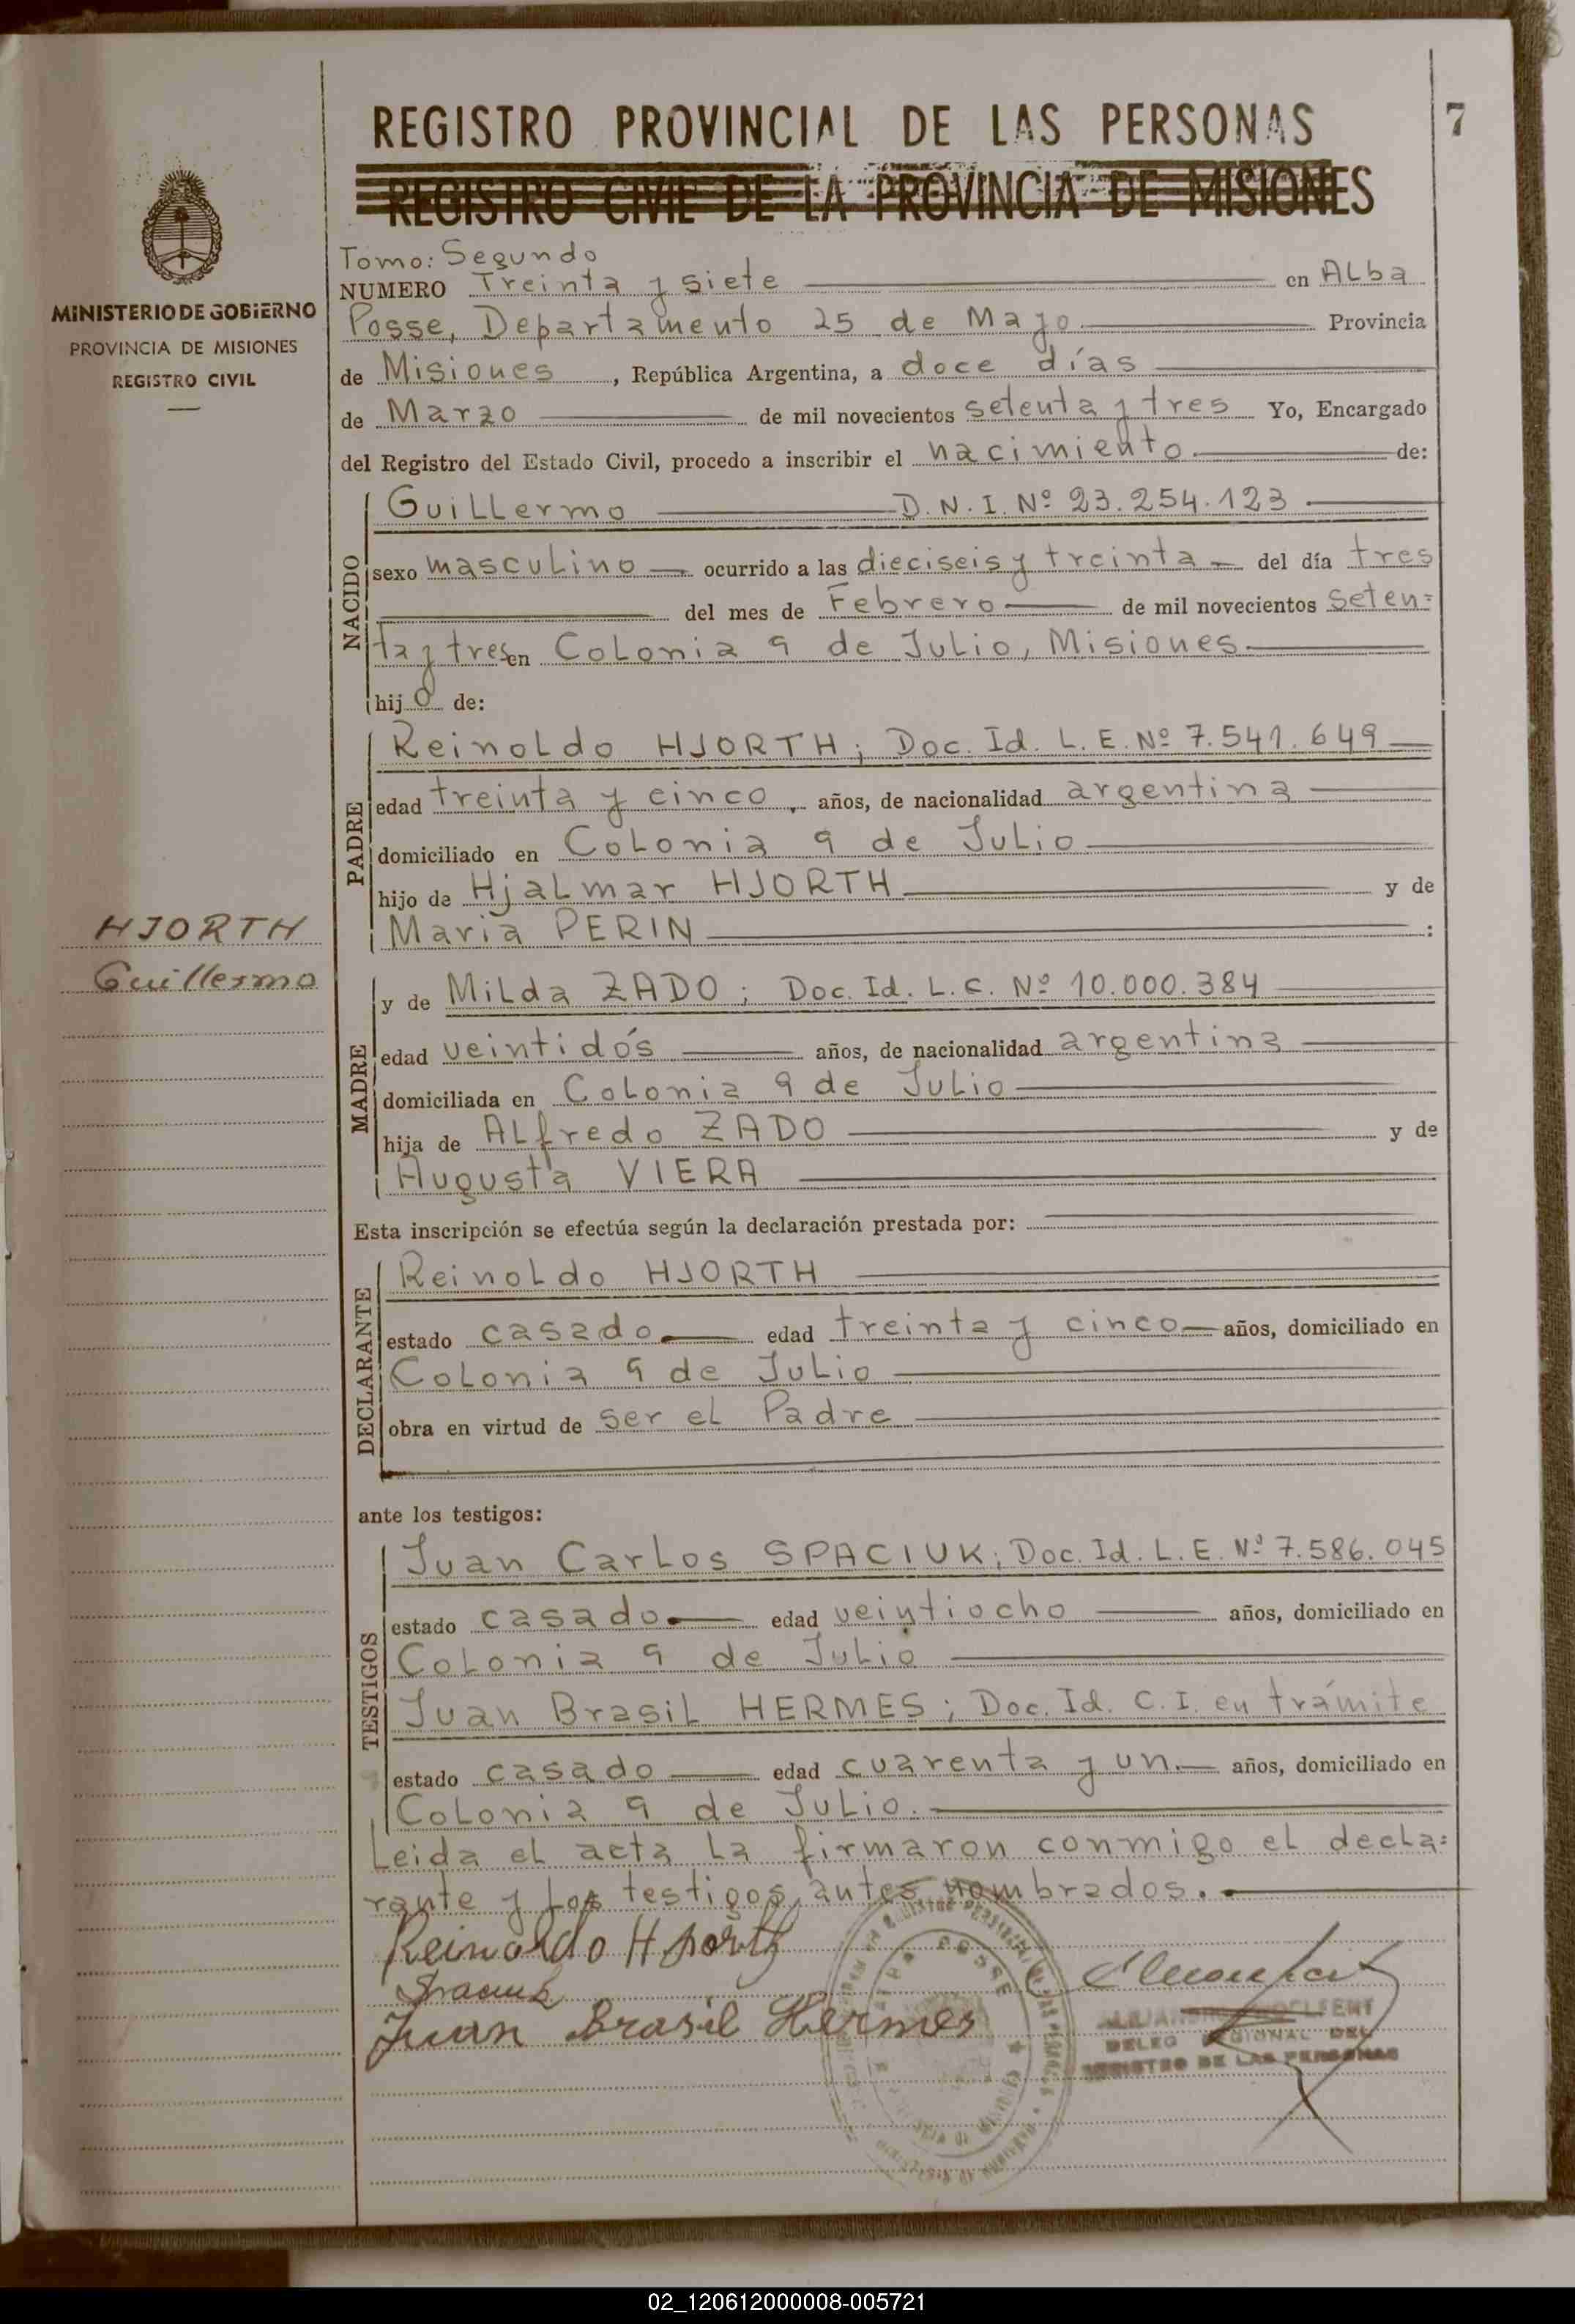 REGISTRO PROVINCIAL DE LAS PERSONAS
7
REGISTRO CIVIL DE LA PROVINCIA DE MISIONES
MINISTERIO DE GOBIERNO
PROVINCIA DE MISIONES
REGISTRO CIVIL
Tomo: Segundo
NUMERO Treinta y siete en Alba
Posse, Departamento 25 de Mayo Provincia
de Misiones, República Argentina, a doce días
de Marzo de mil novecientos setenta y tres Yo, Encargado
del Registro del Estado Civil, procedo a inscribir el nacimiento de:
NACIDO
Guillermo D.N.I. Nº 23.254.123
sexo masculino ocurrido a las dieciseis y treinta del día tres
del mes de Febrero de mil novecientos seten=
ta y tres en Colonia 9 de Julio, Misiones
hijo de:
PADRE
Reinoldo HJORTH; Doc. Id. L.E. Nº 7.541.649
edad treinta y cinco, años, de nacionalidad argentina
domiciliado en Colonia 9 de Julio
hijo de Hjalmar HJORTH y de
Maria PERIN :
HJORTH
Guillermo
MADRE
y de Milda ZADO; Doc. Id. L.C. Nº 10.000.384
edad veintidós años, de nacionalidad argentina
domiciliada en Colonia 9 de Julio
hija de Alfredo ZADO y de
Augusta VIERA
Esta inscripción se efectúa según la declaración prestada por:
DECLARANTE
Reinoldo HJORTH
estado casado edad treinta y cinco años, domiciliado en
Colonia 9 de Julio
obra en virtud de ser el Padre
ante los testigos:
TESTIGOS
Juan Carlos SPACIUK; Doc. Id. L.E. Nº 7.586.045
estado casado edad veintiocho años, domiciliado en
Colonia 9 de Julio
Juan Brasil HERMES; Doc. Id. C.I. en trámite
estado casado edad cuarenta y un. años, domiciliado en
Colonia 9 de Julio.
Leida el acta la firmaron conmigo el decla=
rante y los testigos antes nombrados.
Reinoldo Hjorth
Spaciuk
Juan Brasil Hermes
REGIONAL DEL
REGISTRO DE LAS PERSONAS
02_120612000008-005721